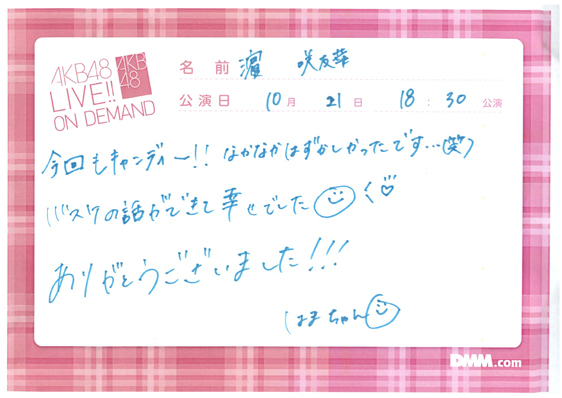 AKB48
LIVE!!
ON DEMAND
AKB
48
名前 濵 咲友菜
公演日 10月 21日 18:30 公演
今回もキャンディー!! なかなかはずかしかったです…(笑)
バスケの話ができて幸せでした
ありがとうございました!!!
はまちゃん
DMM.com